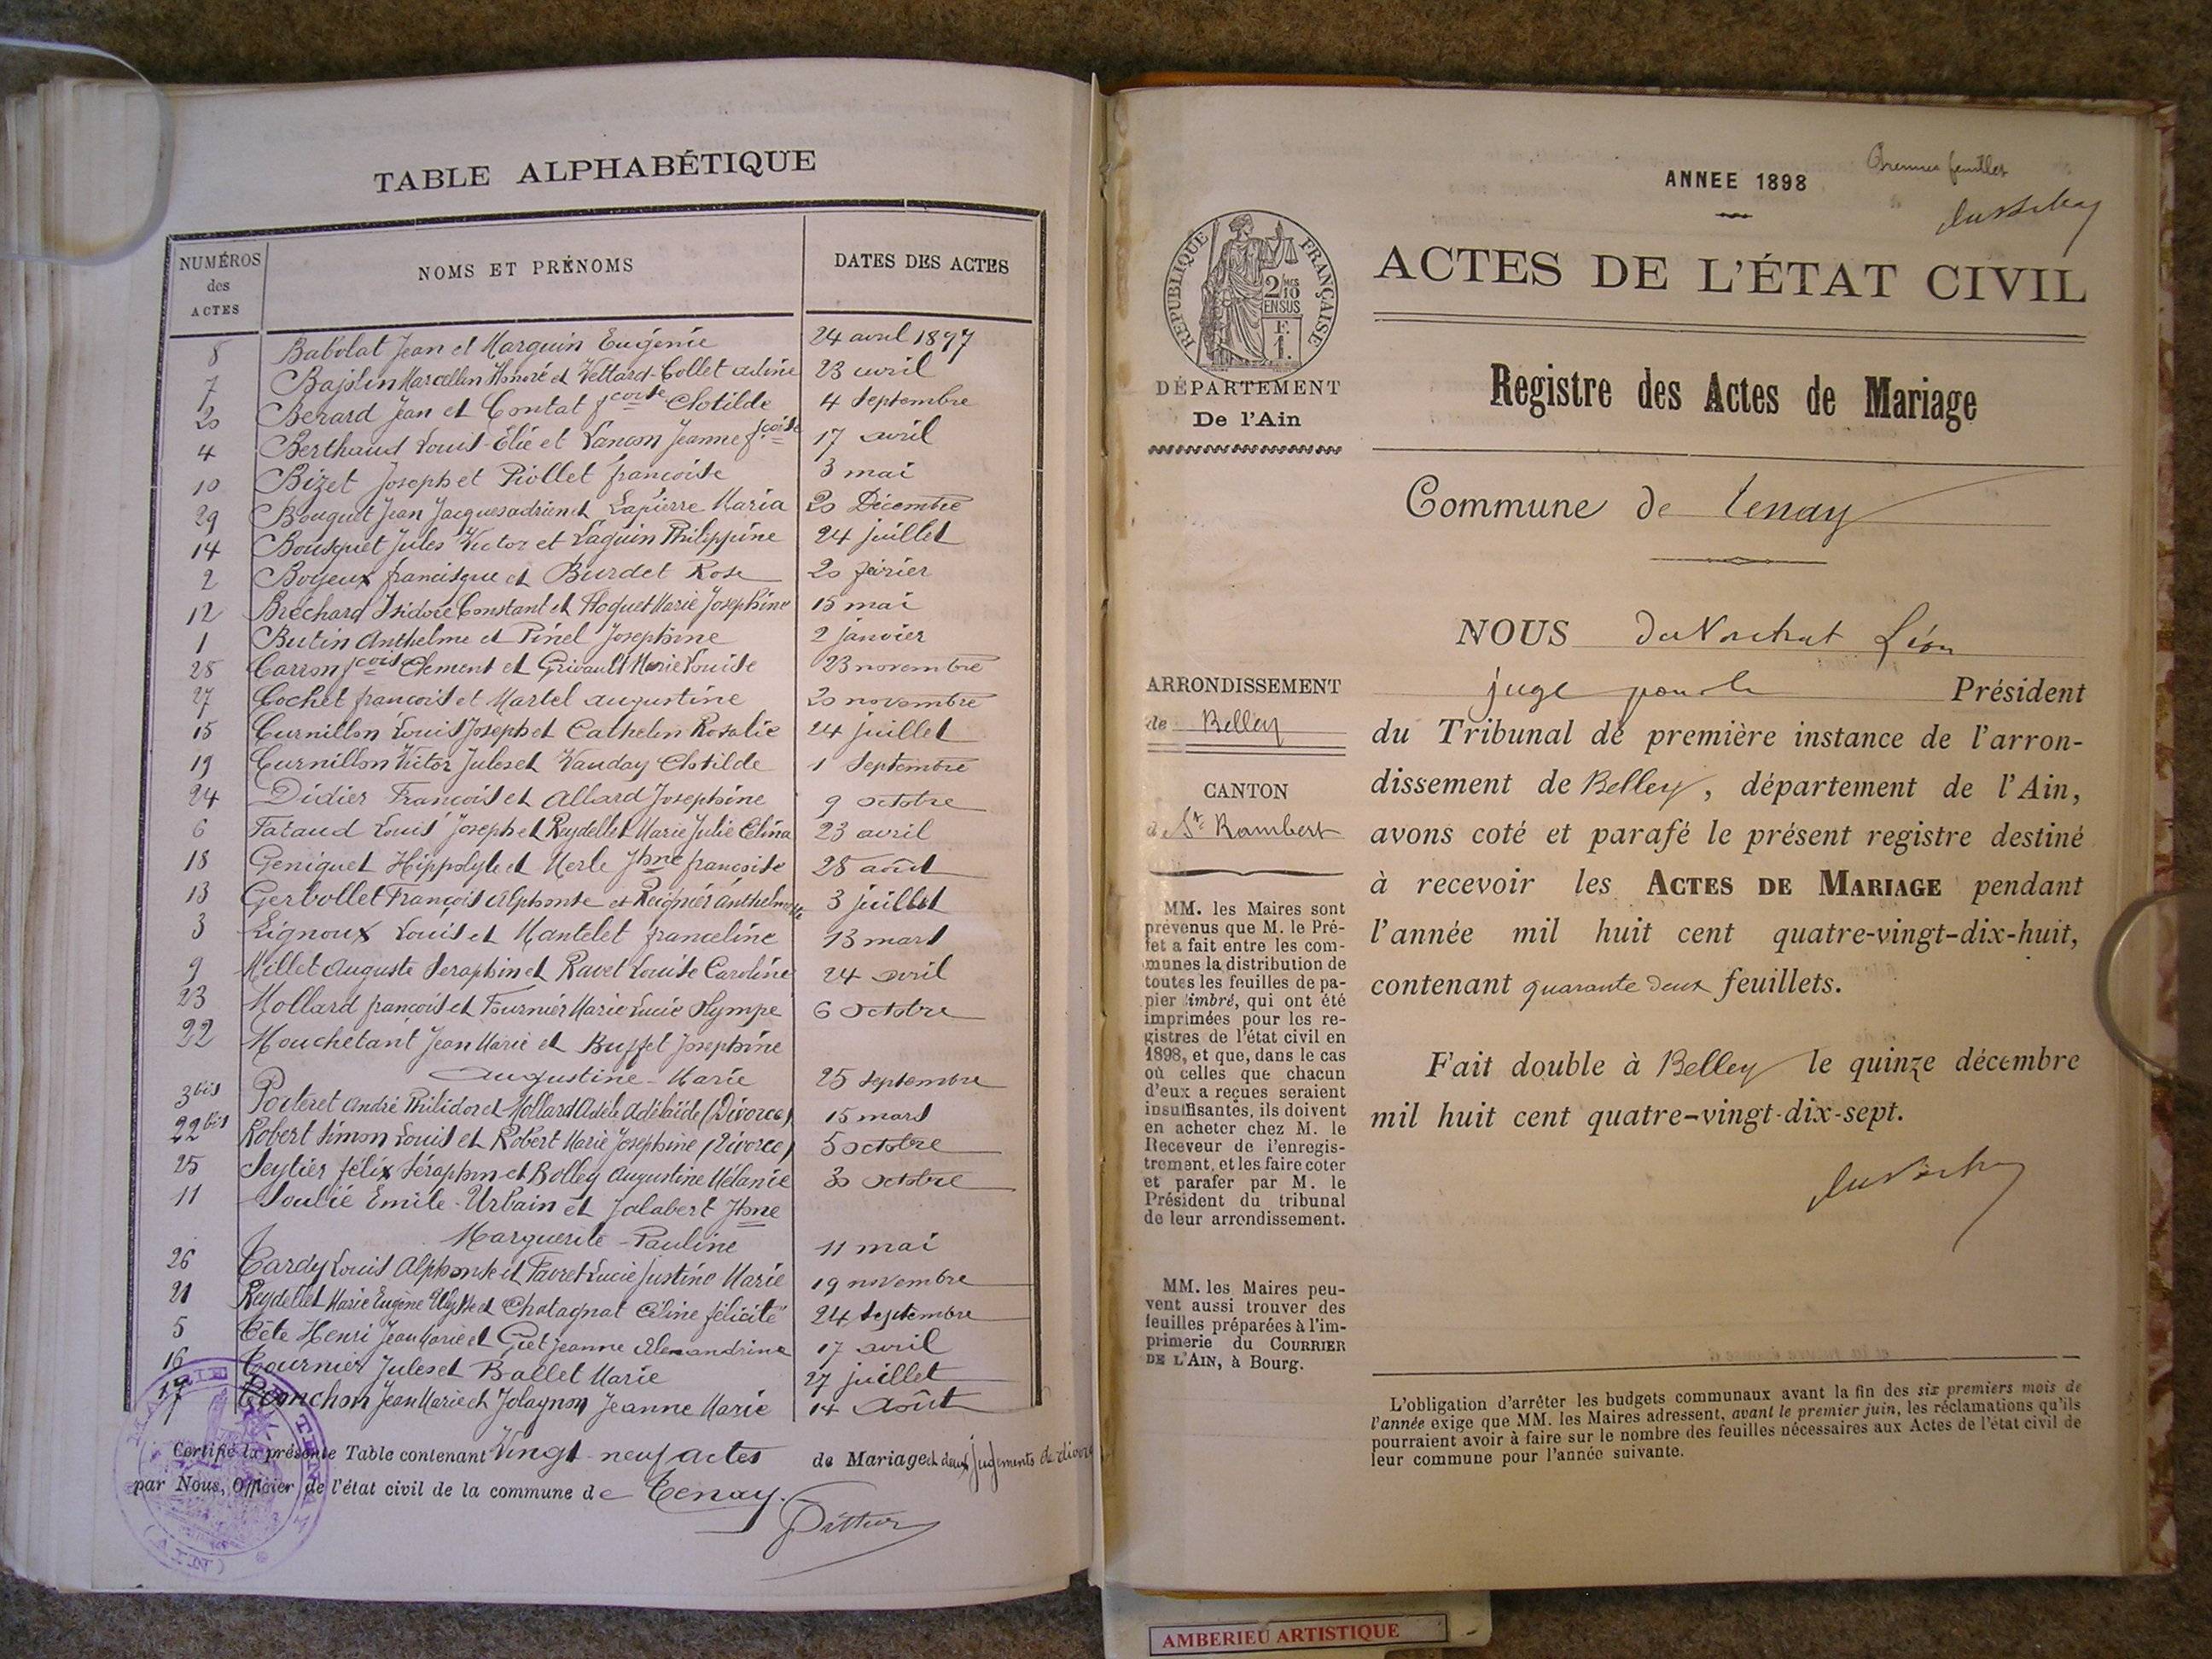 TABLE ALPHABÉTIQUE
NUMÉROS des ACTES
NOMS ET PRÉNOMS
DATES DES ACTES
8 Babolat Jean et Marquin Eugénie 24 avril 1897
7 Bajolin Marcellin Honoré et Vettard-Collet aline 23 avril
20 Berard Jean et Contat fcoise Clotilde 4 Septembre
4 Berthaud Louis-Élie et Lançon Jeanne fcoise 17 avril
10 Bizet Joseph et Piollet françoise 3 mai
29 Bouquet Jean Jacques adrien et Lapierre Maria 20 Décembre
14 Bousquet Jules Victor et Laguin Philippine 24 juillet
2 Boyeux francisque et Burdet Rose 20 février
12 Bréchard Isidore Constant et Hoquet Marie Josephine 15 mai
1 Butin Anthelme et Pinel Josephine 2 janvier
28 Carron fcois Clement et Grivault Marie Louise 23 novembre
27 Cochet francois et Martel augustine 20 novembre
15 Curnillon Louis Joseph et Cathelin Rosalie 24 juillet
19 Curnillon Victor Jules et Vauday Clotilde 1 Septembre
24 Didier François et Allard Josephine 9 octobre
6 Fataud Louis Joseph et Reydellet Marie Julie Elina 23 avril
18 Geniquet Hippolyte et Merle Jhne françoise 28 août
13 Gerbollet François Alphonse et Reignier anthelmette 3 juillet
3 Lignoux Louis et Mantelet franceline 13 mars
9 Millet Auguste Seraphin et Ravet Louise Caroline 24 avril
23 Mollard françois et Fournier Marie Lucie Olympe 6 octobre
22 Mouchetant Jean Marie et Buffet Josephine
Augustine-Marie 25 Septembre
3bis Poiteret André Philidor et Mollard Adèle Adélaïde (Divorce) 15 mars
22bis Robert Simon Louis et Robert Marie Josephine (Divorce) 5 octobre
25 Seytier félix Séraphin et Bolley Augustine Mélanie 30 octobre
11 Soulié Emile-Urbain et Jalabert Jhne
Marguerite-Pauline 11 mai
26 Tardy Louis Alphonse et Favret Lucie Justine Marie 19 novembre
21 Reydellet Marie Eugène Ulysse et Chatagnat Céline félicité 24 Septembre
5 Tête Henri Jean Marie et Giet Jeanne Alexandrine 17 avril
16 Tournier Jules et Ballet Marie 27 juillet
17 Tronchon Jean Marie et Jolagnon Jeanne Marie 14 Août
Certifié la présente Table contenant Vingt-neuf actes de Mariage et deux jugements de divorce
par Nous, Officier de l'état civil de la commune de Tenay.
MAIRIE DE TENAY
(AIN)
ANNEE 1898
feuillet
ACTES DE L'ÉTAT CIVIL
RÉPUBLIQUE FRANÇAISE
2 10mes EN SUS
F. 1.
DÉPARTEMENT
De l'Ain
Registre des Actes de Mariage
Commune de Tenay
NOUS Léon
juge pour le Président
du Tribunal de première instance de l'arron-
dissement de Belley, département de l'Ain,
avons coté et parafé le présent registre destiné
à recevoir les ACTES DE MARIAGE pendant
l'année mil huit cent quatre-vingt-dix-huit,
contenant quarante deux feuillets.
Fait double à Belley le quinze décembre
mil huit cent quatre-vingt-dix-sept.
ARRONDISSEMENT
de Belley
CANTON
de St Rambert
MM. les Maires sont
prévenus que M. le Pré-
fet a fait entre les com-
munes la distribution de
toutes les feuilles de pa-
pier timbré, qui ont été
imprimées pour les re-
gistres de l'état civil en
1898, et que, dans le cas
où celles que chacun
d'eux a reçues seraient
insuffisantes, ils doivent
en acheter chez M. le
Receveur de l'enregis-
trement, et les faire coter
et parafer par M. le
Président du tribunal
de leur arrondissement.
MM. les Maires peu-
vent aussi trouver des
feuilles préparées à l'im-
primerie du COURRIER
DE L'AIN, à Bourg.
L'obligation d'arrêter les budgets communaux avant la fin des six premiers mois de
l'année exige que MM. les Maires adressent, avant le premier juin, les réclamations qu'ils
pourraient avoir à faire sur le nombre des feuilles nécessaires aux Actes de l'état civil de
leur commune pour l'année suivante.
AMBERIEU ARTISTIQUE